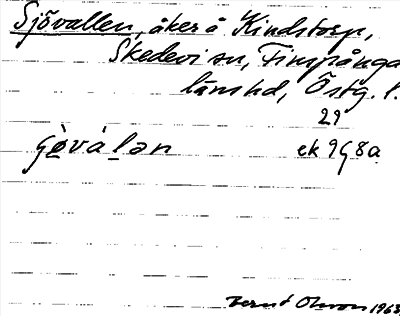 Sjövallen, åker å Kindstorp,
Skedevi sn, Finspånga
länshd, Östg. l.
29
ek 9G8a
Bernt Olsson 1963